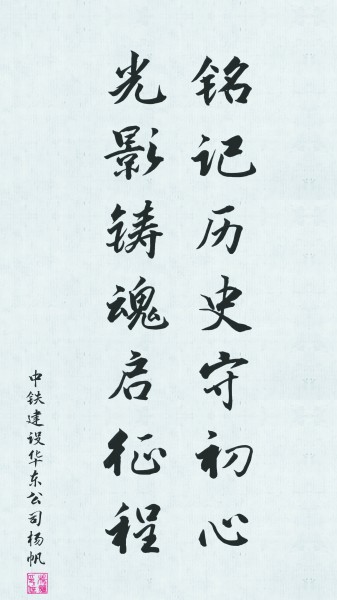 铭记历史守初心
光影铸魂启征程
中铁建设华东公司杨帆